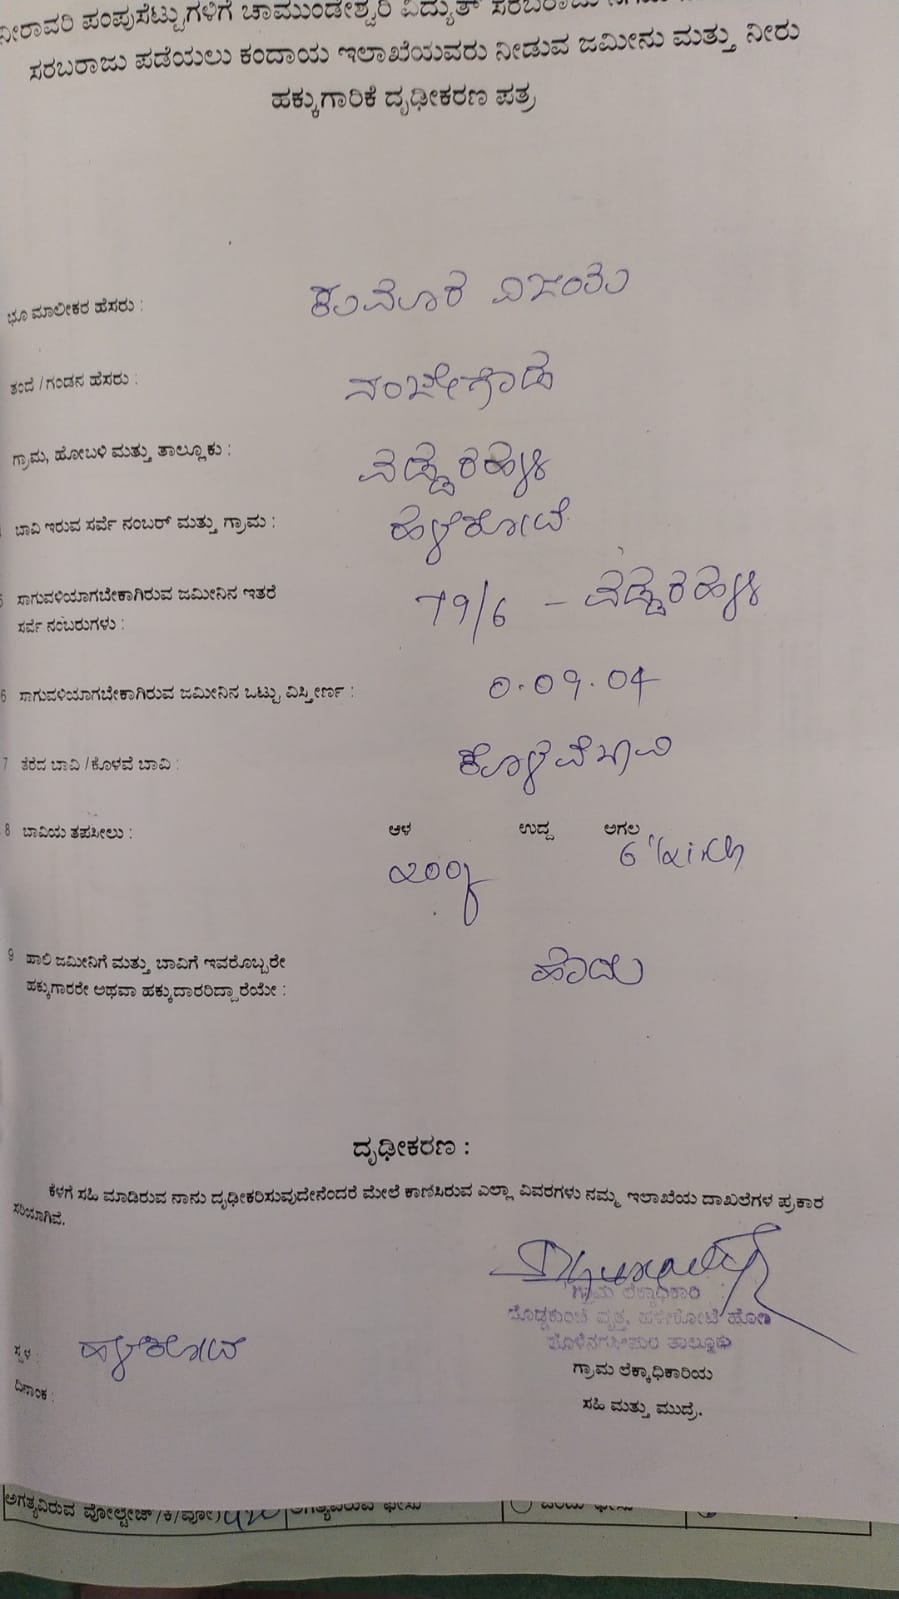 ನೀರಾವರಿ ಪಂಪುಸೆಟ್ಟುಗಳಿಗೆ ಚಾಮುಂಡೇಶ್ವರಿ ವಿದ್ಯುತ್ ಸರಬರಾಜು
ಸರಬರಾಜು ಪಡೆಯಲು ಕಂದಾಯ ಇಲಾಖೆಯವರು ನೀಡುವ ಜಮೀನು ಮತ್ತು ನೀರು
ಹಕ್ಕುಗಾರಿಕೆ ದೃಢೀಕರಣ ಪತ್ರ
ಭೂ ಮಾಲೀಕರ ಹೆಸರು :
ತಂದೆ / ಗಂಡನ ಹೆಸರು : ನಂಜೇಗೌಡ
ಗ್ರಾಮ, ಹೋಬಳಿ ಮತ್ತು ತಾಲ್ಲೂಕು :
ಬಾವಿ ಇರುವ ಸರ್ವೆ ನಂಬರ್ ಮತ್ತು ಗ್ರಾಮ : ಹಳೇಕೋಟೆ
5 ಸಾಗುವಳಿಯಾಗಬೇಕಾಗಿರುವ ಜಮೀನಿನ ಇತರೆ
ಸರ್ವೆ ನಂಬರುಗಳು : 79/6 -
6 ಸಾಗುವಳಿಯಾಗಬೇಕಾಗಿರುವ ಜಮೀನಿನ ಒಟ್ಟು ವಿಸ್ತೀರ್ಣ : 0.09.04
7 ತೆರೆದ ಬಾವಿ / ಕೊಳವೆ ಬಾವಿ : ಕೊಳವೆ ಬಾವಿ
8 ಬಾವಿಯ ತಪಸೀಲು : ಆಳ ಉದ್ದ ಅಗಲ
9 ಹಾಲಿ ಜಮೀನಿಗೆ ಮತ್ತು ಬಾವಿಗೆ ಇವರೊಬ್ಬರೇ
ಹಕ್ಕುಗಾರರೇ ಅಥವಾ ಹಕ್ಕುದಾರರಿದ್ದಾರೆಯೇ : ಹೌದು
ದೃಢೀಕರಣ :
ಕೆಳಗೆ ಸಹಿ ಮಾಡಿರುವ ನಾನು ದೃಢೀಕರಿಸುವುದೇನೆಂದರೆ ಮೇಲೆ ಕಾಣಿಸಿರುವ ಎಲ್ಲಾ ವಿವರಗಳು ನಮ್ಮ ಇಲಾಖೆಯ ದಾಖಲೆಗಳ ಪ್ರಕಾರ
ಸರಿಯಾಗಿವೆ.
ಗ್ರಾಮ ಲೆಕ್ಕಾಧಿಕಾರಿ
ದೊಡ್ಡಕುಂಚೆ ವೃತ್ತ, ಹಳೇಕೋಟೆ ಹೋಬಳಿ
ಹೊಳೆನರಸೀಪುರ ತಾಲ್ಲೂಕು
ಸ್ಥಳ : ಹಳೇಕೋಟೆ
ದಿನಾಂಕ :
ಗ್ರಾಮ ಲೆಕ್ಕಾಧಿಕಾರಿಯ
ಸಹಿ ಮತ್ತು ಮುದ್ರೆ.
ಅಗತ್ಯವಿರುವ ವೋಲ್ಟೇಜ್